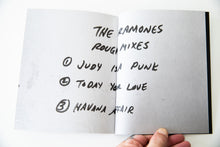 THE RAMONES
ROUGH MIXES
① JUDY IS A PUNK
② TODAY YOR LOVE
③ HAVANA AFFAIR